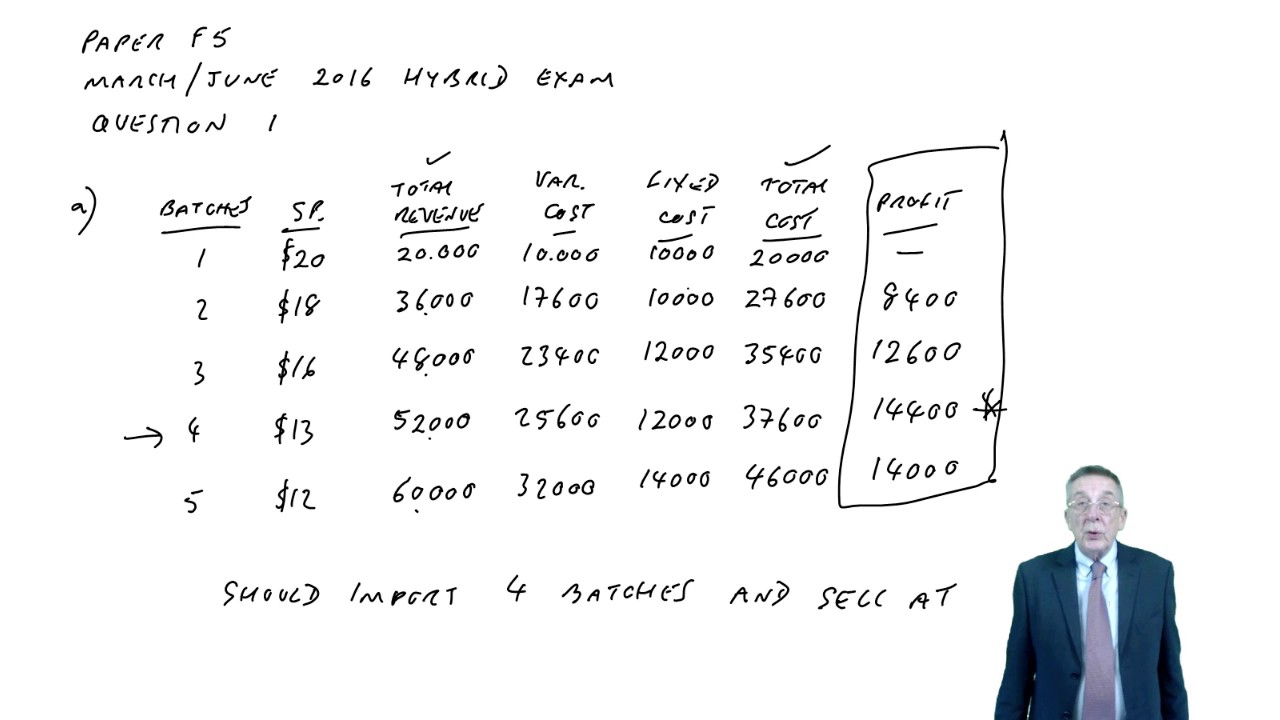 PAPER F5
MARCH/JUNE 2016 HYBRID EXAM
QUESTION 1
a) BATCHES SP. TOTAL REVENUE VAR. COST FIXED COST TOTAL COST PROFIT
1 $20 20.000 10.000 10000 20000 —
2 $18 36.000 17600 10000 27600 8400
3 $16 48.000 23400 12000 35400 12600
→ 4 $13 52.000 25600 12000 37600 14400 *
5 $12 60.000 32000 14000 46000 14000
SHOULD IMPORT 4 BATCHES AND SELL AT